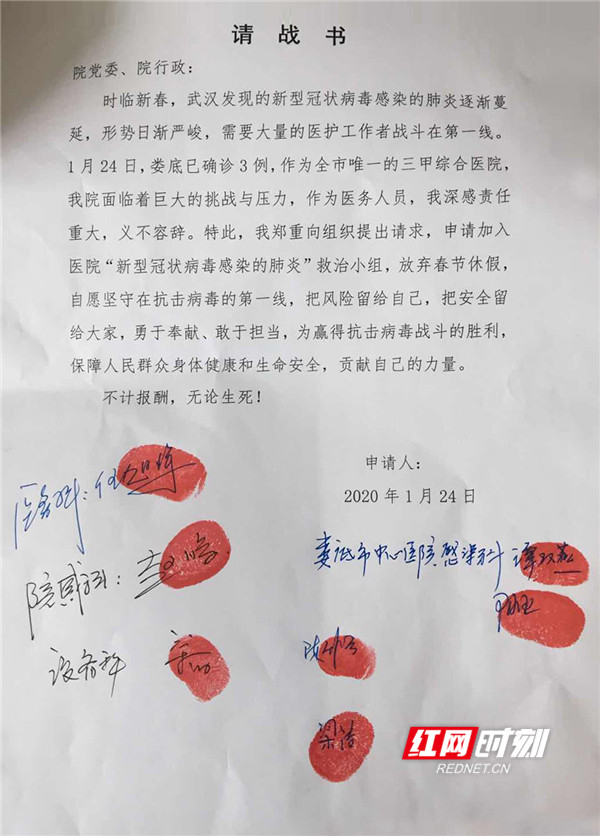 请战书
院党委、院行政：
时临新春，武汉发现的新型冠状病毒感染的肺炎逐渐蔓
延，形势日渐严峻，需要大量的医护工作者战斗在第一线。
1月24日，娄底已确诊3例，作为全市唯一的三甲综合医院，
我院面临着巨大的挑战与压力，作为医务人员，我深感责任
重大，义不容辞。特此，我郑重向组织提出请求，申请加入
医院“新型冠状病毒感染的肺炎”救治小组，放弃春节休假，
自愿坚守在抗击病毒的第一线，把风险留给自己，把安全留
给大家，勇于奉献、敢于担当，为赢得抗击病毒战斗的胜利，
保障人民群众身体健康和生命安全，贡献自己的力量。
不计报酬，无论生死！
申请人：
2020年1月24日
医务科：
院感科：
设备科
娄底市中心医院感染科
梁洁
红网时刻
REDNET.CN